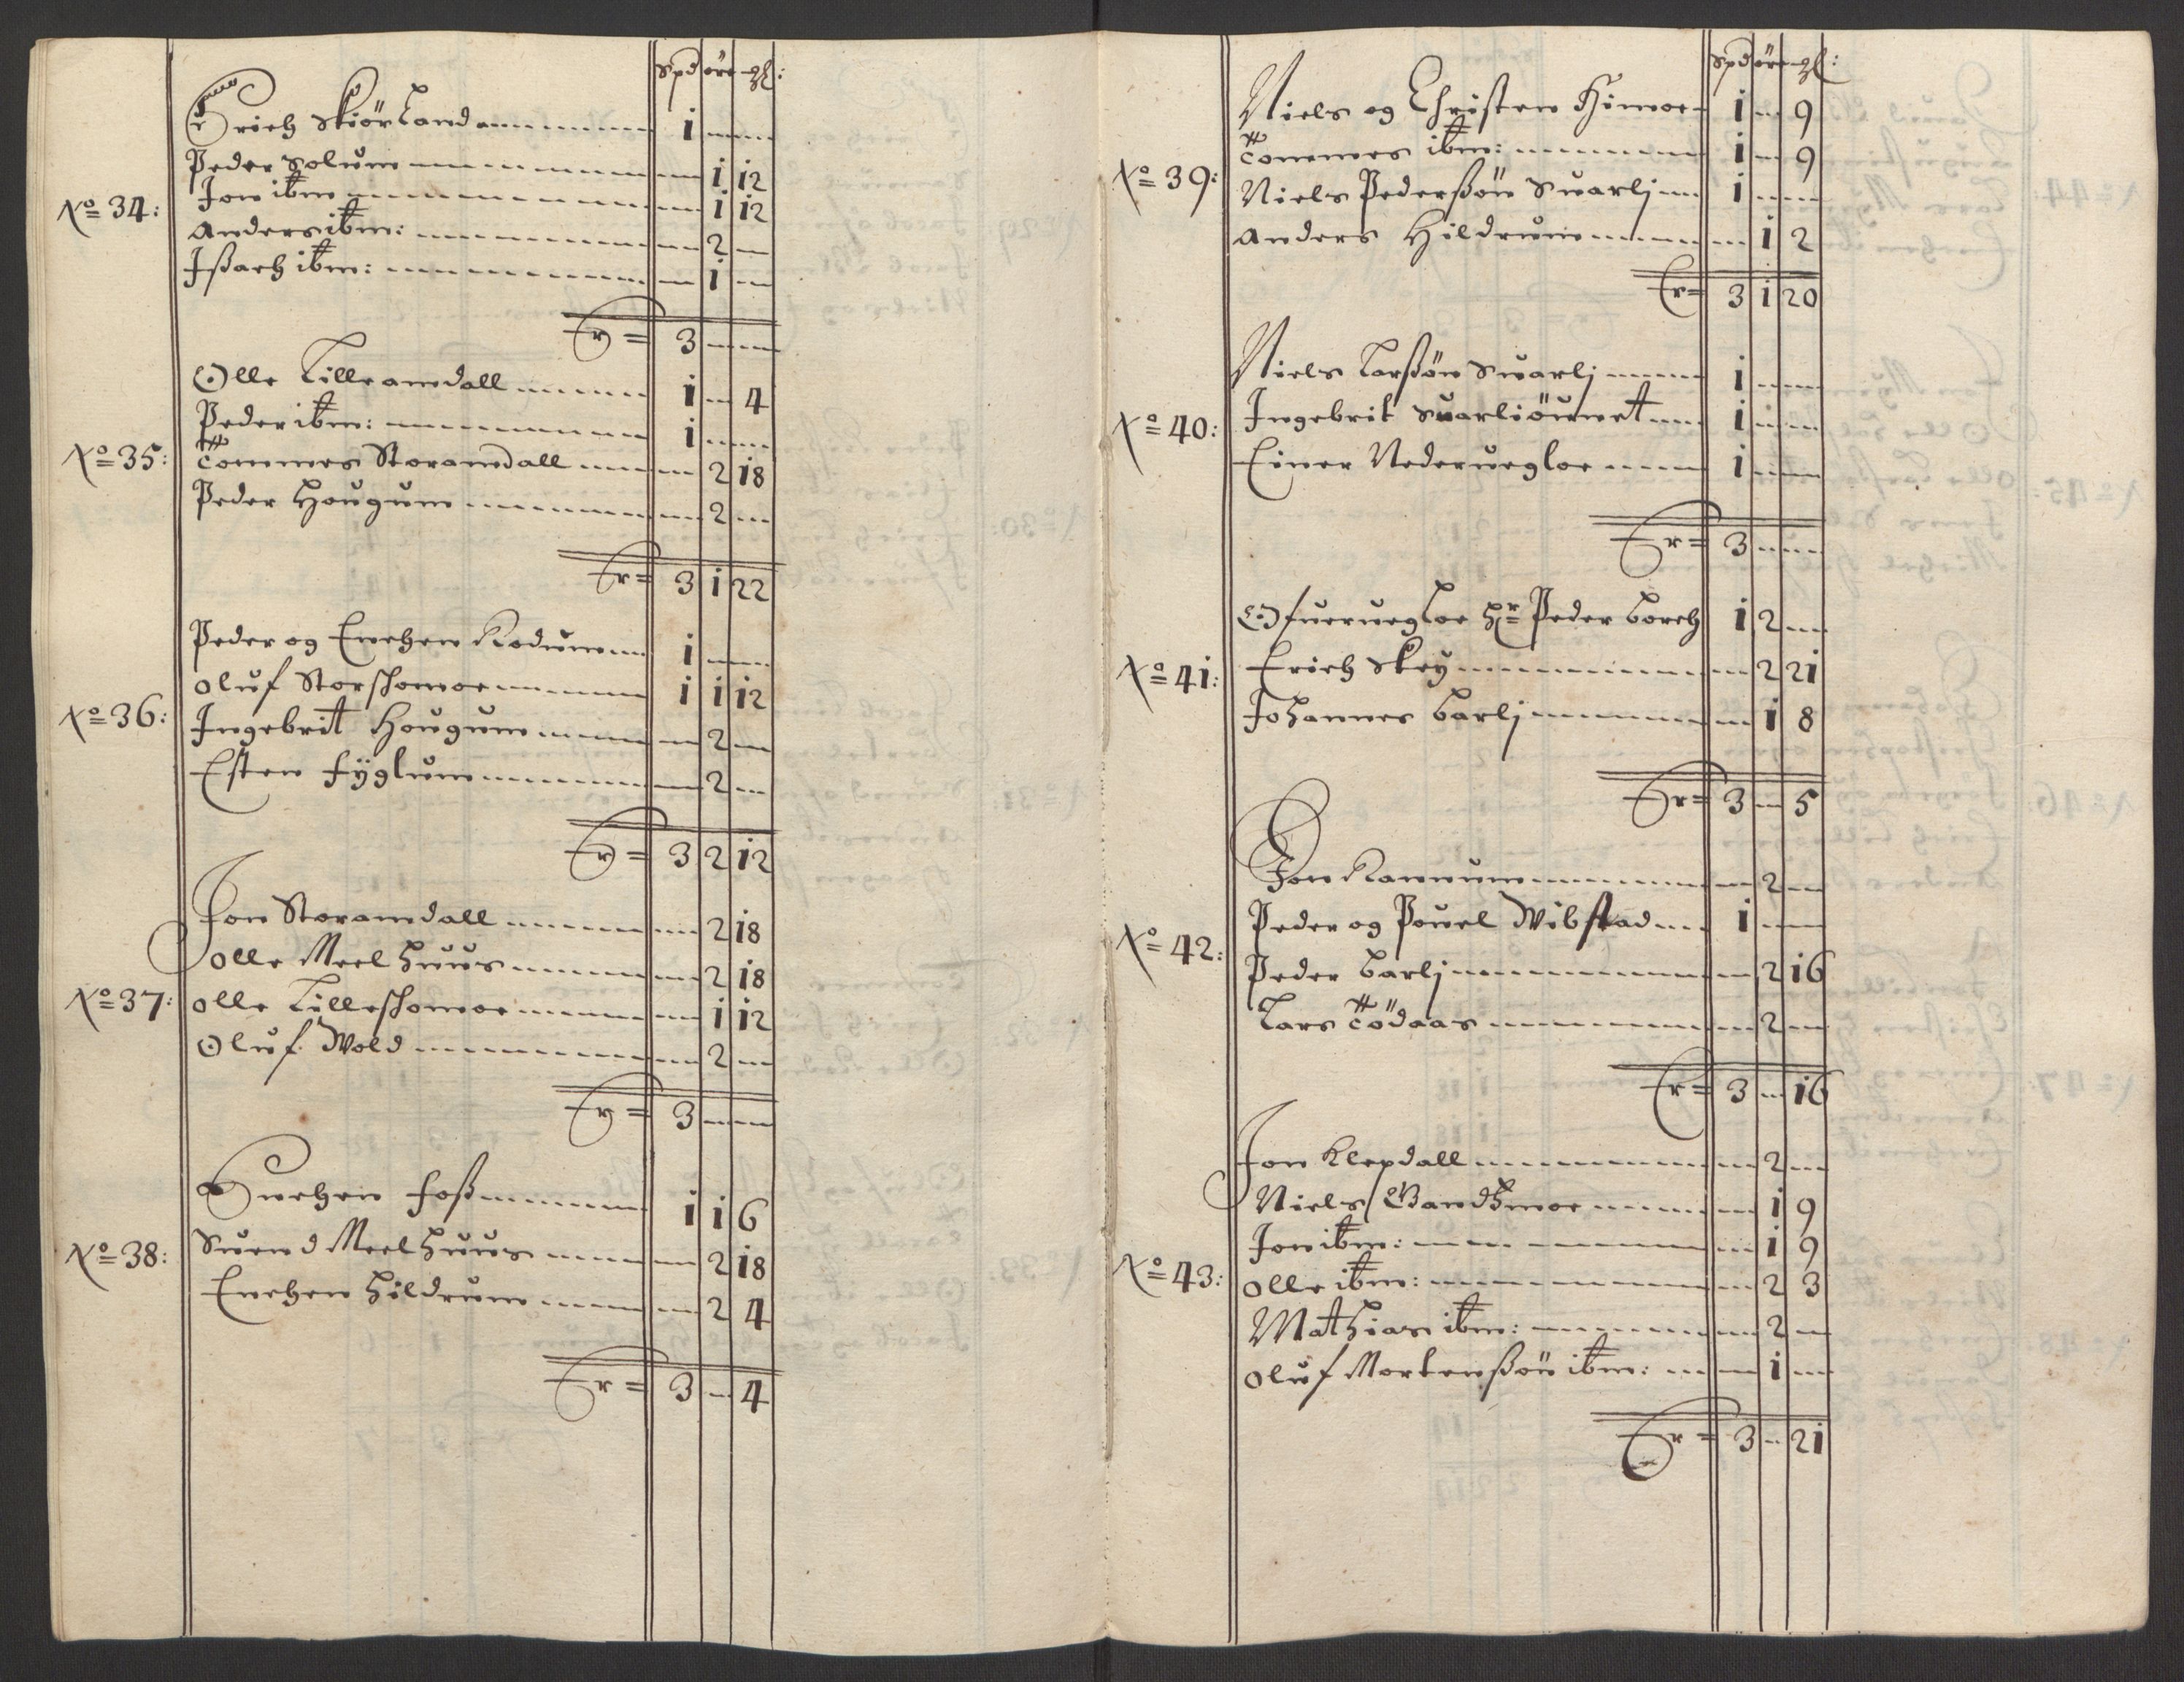 Spd öre ℳ:
Erich Skiörland i
Peder Solum i 12
No 34: Jon ibm i 12
Anders ibm: 2
Jßach ibm: i
Er= 3
Olle Lilleamdall i 4
Peder ibm: i
No 35: Tommes Storamdall 2 18
Peder Hougum 2
Er= 3 i 22
Peder og Enchen Rodum i
Oluf Storshomoe i i 12
No 36: Ingebrit Hougum 2
Esten Fÿglum 2
Er= 3 2 12
Jon Storamdall 2 18
Olle Meelhuus 2 18
No 37: Olle Lilleshomoe i 12
Oluf Wold 2
Er= 3
Enchen Foß i i 6
No 38: Suend Meelhuus 2 18
Enchen Hildrum 2 4
Er= 3 4
Spd öre ℳ:
Niels og Christen Himoe i 9
Tommes ibm: i 9
No 39: Niels Pederßön Suarlj i
Anders Hildrum i 2
Er= 3 i 20
Niels Larßön Suarlj i
No 40: Ingebrit Suarliöunet i
Einer Nederuegloe i
Er= 3
Ofueruegloe Hr Peder Borch i 2
No 41: Erich Skey 2 21
Johannes Barlj i 8
Er= 3 5
Jon Rannum 2
Peder og Pouel Wibstad i
No 42: Peder Barlj 2 16
Lars Tödaas 2
Er= 3 16
Jon Klepdall 2
Niels Gandsmoe i 9
Jon ibm: i 9
No 43: Olle ibm: 2 3
Mathias ibm: 2
Oluf Mortenßön ibm: i
Er= 3 21